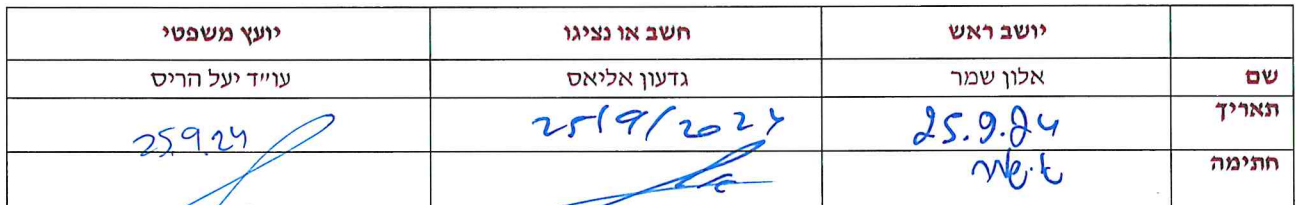 יושב ראש חשב או נציגו יועץ משפטי
שם אלון שמר גדעון אליאס עו״ד יעל הריס
תאריך 25.9.24 25/9/2024 25.9.24
חתימה